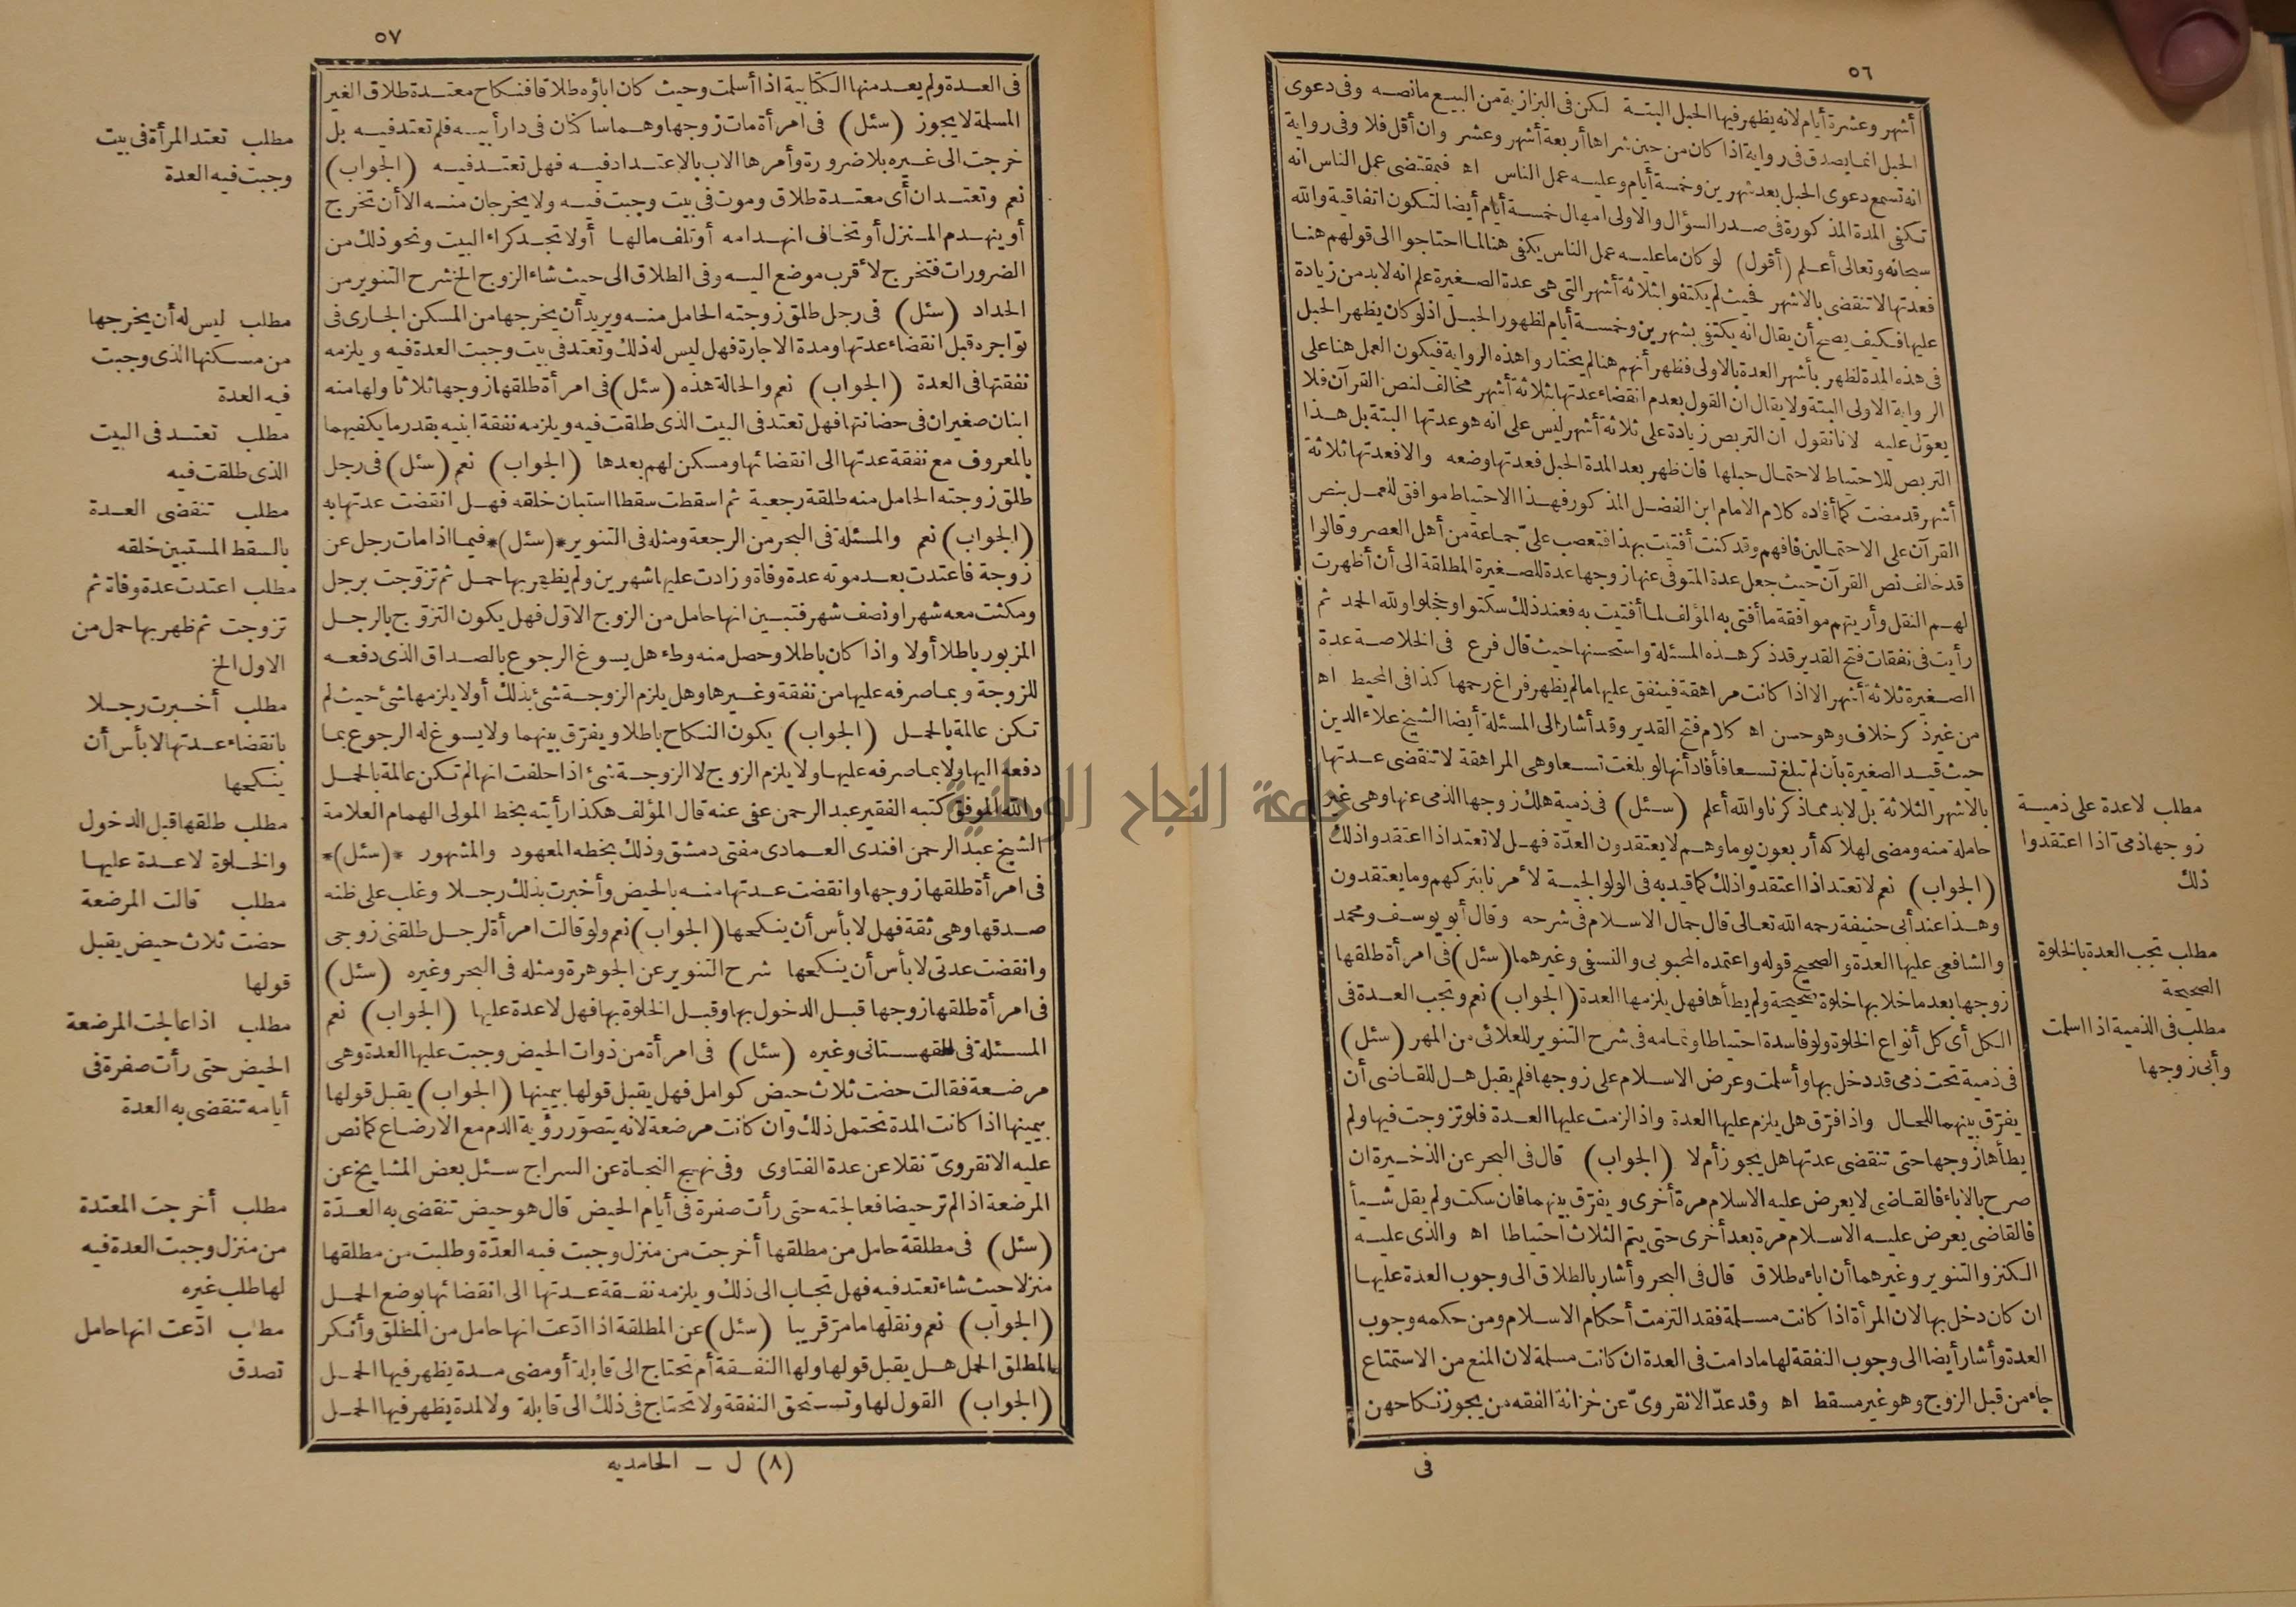 ٥٦
أشهر وعشرة أيام لانه يظهر فيها الحبل البتة لكن فى البزازية من البيع مانصه وفى دعوى
الحبل انما يصدق فى رواية اذا كان من حين شراها أربعة أشهر وعشر وان أقل فلا وفى رواية
انه تسمع دعوى الحبل بعد شهرين وخمسة أيام وعليه عمل الناس اه فمقتضى عمل الناس انه
تكفى المدة المذكورة فى صدر السؤال والاولى امهال خمسة أيام أيضا لتكون اتفاقية والله
سبحانه وتعالى أعلم (أقول) لو كان ما عليه عمل الناس يكفى هنا لما احتاجوا الى قولهم هنا
فعدتها لا تنقضى بالاشهر فحيث لم يكتفوا بثلاثة أشهر التى هى عدة الصغيرة علم انه لابد من زيادة
عليها فكيف يصح أن يقال انه يكتفى بشهرين وخمسة أيام لظهور الحبل اذ لو كان يظهر الحبل
فى هذه المدة لظهر بأشهر العدة بالاولى فظهر أنهم هنا لم يختاروا هذه الرواية فيكون العمل هنا على
الرواية الاولى البتة ولا يقال ان القول بعدم انقضاء عدتها بثلاثة أشهر مخالف لنص القرآن فلا
يعوّل عليه لانا نقول ان التربص زيادة على ثلاثة أشهر ليس على انه هو عدتها البتة بل هذا
التربص للاحتياط لاحتمال حبلها فان ظهر بعد المدة الحبل فعدتها وضعه والا فعدتها ثلاثة
أشهر قد مضت كما أفاده كلام الامام ابن الفضل المذكور فهذا الاحتياط موافق للعمل بنص
القرآن على الاحتمالين فافهم وقد كنت أفتيت بهذا فتعصب علىّ جماعة من أهل العصر وقالوا
قد خالف نص القرآن حيث جعل عدة المتوفى عنها زوجها عدة للصغيرة المطلقة الى أن أظهرت
لهم النقل وأريتهم موافقة ما أفتى به المؤلف لما أفتيت به فعند ذلك سكتوا وخجلوا ولله الحمد ثم
رأيت فى نفقات فتح القدير قد ذكر هذه المسئلة واستحسنها حيث قال فرع فى الخلاصة عدة
الصغيرة ثلاثة أشهر الا اذا كانت مراهقة فينفق عليها مالم يظهر فراغ رحمها كذا فى المحيط اه
من غير ذكر خلاف وهو حسن اه كلام فتح القدير وقد أشار الى المسئلة أيضا الشيخ علاء الدين
حيث قيد الصغيرة بأن لم تبلغ تسعا فأفاد أنها لو بلغت تسعا وهى المراهقة لا تنقضى عدتها
بالاشهر الثلاثة بل لابد مما ذكرنا والله أعلم (سئل) فى ذمية هلك زوجها الذمى عنها وهى غير
حاملة منه ومضى لهلاكه أربعون يوما وهم لا يعتقدون العدّة فهل لا تعتد اذا اعتقدوا ذلك
(الجواب) نعم لا تعتد اذا اعتقدوا ذلك كما قيد به فى الولوالجية لأمرنا بتركهم وما يعتقدون
وهذا عند أبى حنيفة رحمه الله تعالى قال جمال الاسلام فى شرحه وقال أبو يوسف ومحمد
والشافعى عليها العدة والصحيح قوله واعتمده المحبوبى والنسفى وغيرهما (سئل) فى امرأة طلقها
زوجها بعد ما خلا بها خلوة صحيحة ولم يطأها فهل يلزمها العدة (الجواب) نعم وتجب العدة فى
الكل أى كل أنواع الخلوة ولو فاسدة احتياطا وتمامه فى شرح التنوير للعلائى من المهر (سئل)
فى ذمية تحت ذمى قد دخل بها وأسلمت وعرض الاسلام على زوجها فلم يقبل هل للقاضى أن
يفرّق بينهما للحال واذا فرّق هل يلزم عليها العدة واذا لزمت عليها العدة فلو تزوجت فيها ولم
يطأها زوجها حتى تنقضى عدتها هل يجوز أم لا (الجواب) قال فى البحر عن الذخيرة ان
صرح بالاباء فالقاضى لا يعرض عليه الاسلام مرة أخرى ويفرّق بينهما فان سكت ولم يقل شيأ
فالقاضى يعرض عليه الاسلام مرة بعد أخرى حتى يتم الثلاث احتياطا اه والذى عليه
الكنز والتنوير وغيرهما أن اباءه طلاق قال فى البحر وأشار بالطلاق الى وجوب العدة عليها
ان كان دخل بها لان المرأة اذا كانت مسلمة فقد التزمت أحكام الاسلام ومن حكمه وجوب
العدة وأشار أيضا الى وجوب النفقة لها مادامت فى العدة ان كانت مسلمة لان المنع من الاستمتاع
جاء من قبل الزوج وهو غير مسقط اه وقد عدّ الانقروىّ عن خزانة الفقه من يجوز نكاحهن
فى
مطلب لا عدة على ذمية
زوجها ذمىّ اذا اعتقدوا
ذلك
مطلب تجب العدة بالخلوة
الصحيحة
مطلب فى الذمية اذا اسلمت
وأبى زوجها
٥٧
فى العدة ولم يعد منها الكتابية اذا أسلمت وحيث كان اباؤه طلاقا فنكاح معتدة طلاق الغير
المسلمة لا يجوز (سئل) فى امرأة مات زوجها وهما ساكنان فى دار أبيه فلم تعتد فيه بل
خرجت الى غيره بلا ضرورة وأمرها الاب بالاعتداد فيه فهل تعتد فيه (الجواب)
نعم وتعتدان أى معتدة طلاق وموت فى بيت وجبت فيه ولا يخرجان منه الا أن تخرج
أو ينهدم المنزل أو تخاف انهدامه أو تلف مالها أو لا تجد كراء البيت ونحو ذلك من
الضرورات فتخرج لأقرب موضع اليه وفى الطلاق الى حيث شاء الزوج الخ شرح التنوير من
الحداد (سئل) فى رجل طلق زوجته الحامل منه ويريد أن يخرجها من المسكن الجارى فى
تواجره قبل انقضاء عدتها ومدة الاجارة فهل ليس له ذلك وتعتد فى بيت وجبت العدة فيه ويلزمه
نفقتها فى العدة (الجواب) نعم والحالة هذه (سئل) فى امرأة طلقها زوجها ثلاثا ولها منه
ابنان صغيران فى حضانتها فهل تعتد فى البيت الذى طلقت فيه ويلزمه نفقة ابنيه بقدر ما يكفيهما
بالمعروف مع نفقة عدتها الى انقضائها ومسكن لهم بعدها (الجواب) نعم (سئل) فى رجل
طلق زوجته الحامل منه طلقة رجعية ثم اسقطت سقطا استبان خلقه فهل انقضت عدتها به
(الجواب) نعم والمسئلة فى البحر من الرجعة ومثله فى التنوير *(سئل)* فيما اذا مات رجل عن
زوجة فاعتدت بعد موته عدة وفاة وزادت عليها شهرين ولم يظهر بها حمل ثم تزوجت برجل
ومكثت معه شهرا ونصف شهر فتبين انها حامل من الزوج الاوّل فهل يكون التزوّج بالرجل
المزبور باطلا أولا واذا كان باطلا وحصل منه وطء هل يسوغ الرجوع بالصداق الذى دفعه
للزوجة وبما صرفه عليها من نفقة وغيرها وهل يلزم الزوجة شئ بذلك أولا يلزمها شئ حيث لم
تكن عالمة بالحمل (الجواب) يكون النكاح باطلا ويفرّق بينهما ولا يسوغ له الرجوع بما
دفعه اليها ولا بما صرفه عليها ولا يلزم الزوج لا الزوجة شئ اذا حلفت انها لم تكن عالمة بالحمل
والله الموفق كتبه الفقير عبد الرحمن عفى عنه قال المؤلف هكذا رأيته بخط المولى الهمام العلامة
الشيخ عبد الرحمن افندى العمادى مفتى دمشق وذلك بخطه المعهود والمشهور *(سئل)*
فى امرأة طلقها زوجها وانقضت عدتها منه بالحيض وأخبرت بذلك رجلا وغلب على ظنه
صدقها وهى ثقة فهل لا بأس أن ينكحها (الجواب) نعم ولو قالت امرأة لرجل طلقنى زوجى
وانقضت عدتى لا بأس أن ينكحها شرح التنوير عن الجوهرة ومثله فى البحر وغيره (سئل)
فى امرأة طلقها زوجها قبل الدخول بها وقبل الخلوة بها فهل لا عدة عليها (الجواب) نعم
المسئلة فى القهستانى وغيره (سئل) فى امرأة من ذوات الحيض وجبت عليها العدة وهى
مرضعة فقالت حضت ثلاث حيض كوامل فهل يقبل قولها بيمينها (الجواب) يقبل قولها
بيمينها اذا كانت المدة تحتمل ذلك وان كانت مرضعة لانه يتصوّر رؤية الدم مع الارضاع كما نص
عليه الانقروىّ نقلا عن عدة الفتاوى وفى نهج النجاة عن السراج سئل بعض المشايخ عن
المرضعة اذا لم تر حيضا فعالجته حتى رأت صفرة فى أيام الحيض قال هو حيض تنقضى به العدّة
(سئل) فى مطلقة حامل من مطلقها أخرجت من منزل وجبت فيه العدّة وطلبت من مطلقها
منزلا حيث شاء تعتد فيه فهل تجاب الى ذلك ويلزمه نفقة عدتها الى انقضائها بوضع الحمل
(الجواب) نعم ونقلها ما مرّ قريبا (سئل) عن المطلقة اذا ادّعت انها حامل من المطلق وأنكر
المطلق الحمل هل يقبل قولها ولها النفقة أم تحتاج الى قابلة أو مضى مدة يظهر فيها الحمل
(الجواب) القول لها وتستحق النفقة ولا تحتاج فى ذلك الى قابلة ولا لمدة يظهر فيها الحمل
(٨) ل ــ الحامديه
مطلب تعتد المرأة فى بيت
وجبت فيه العدة
مطلب ليس له أن يخرجها
من مسكنها الذى وجبت
فيه العدة
مطلب تعتد فى البيت
الذى طلقت فيه
مطلب تنقضى العدة
بالسقط المستبين خلقه
مطلب اعتدت عدة وفاة ثم
تزوجت ثم ظهر بها حمل من
الاول الخ
مطلب أخبرت رجلا
بانقضاء عدتها لا بأس أن
ينكحها
مطلب طلقها قبل الدخول
والخلوة لا عدة عليها
مطلب قالت المرضعة
حضت ثلاث حيض يقبل
قولها
مطلب اذا عالجت المرضعة
الحيض حتى رأت صفرة فى
أيامه تنقضى به العدة
مطلب أخرجت المعتدة
من منزل وجبت العدة فيه
لها طلب غيره
مطلب ادّعت انها حامل
تصدق
جامعة النجاح الوطنية